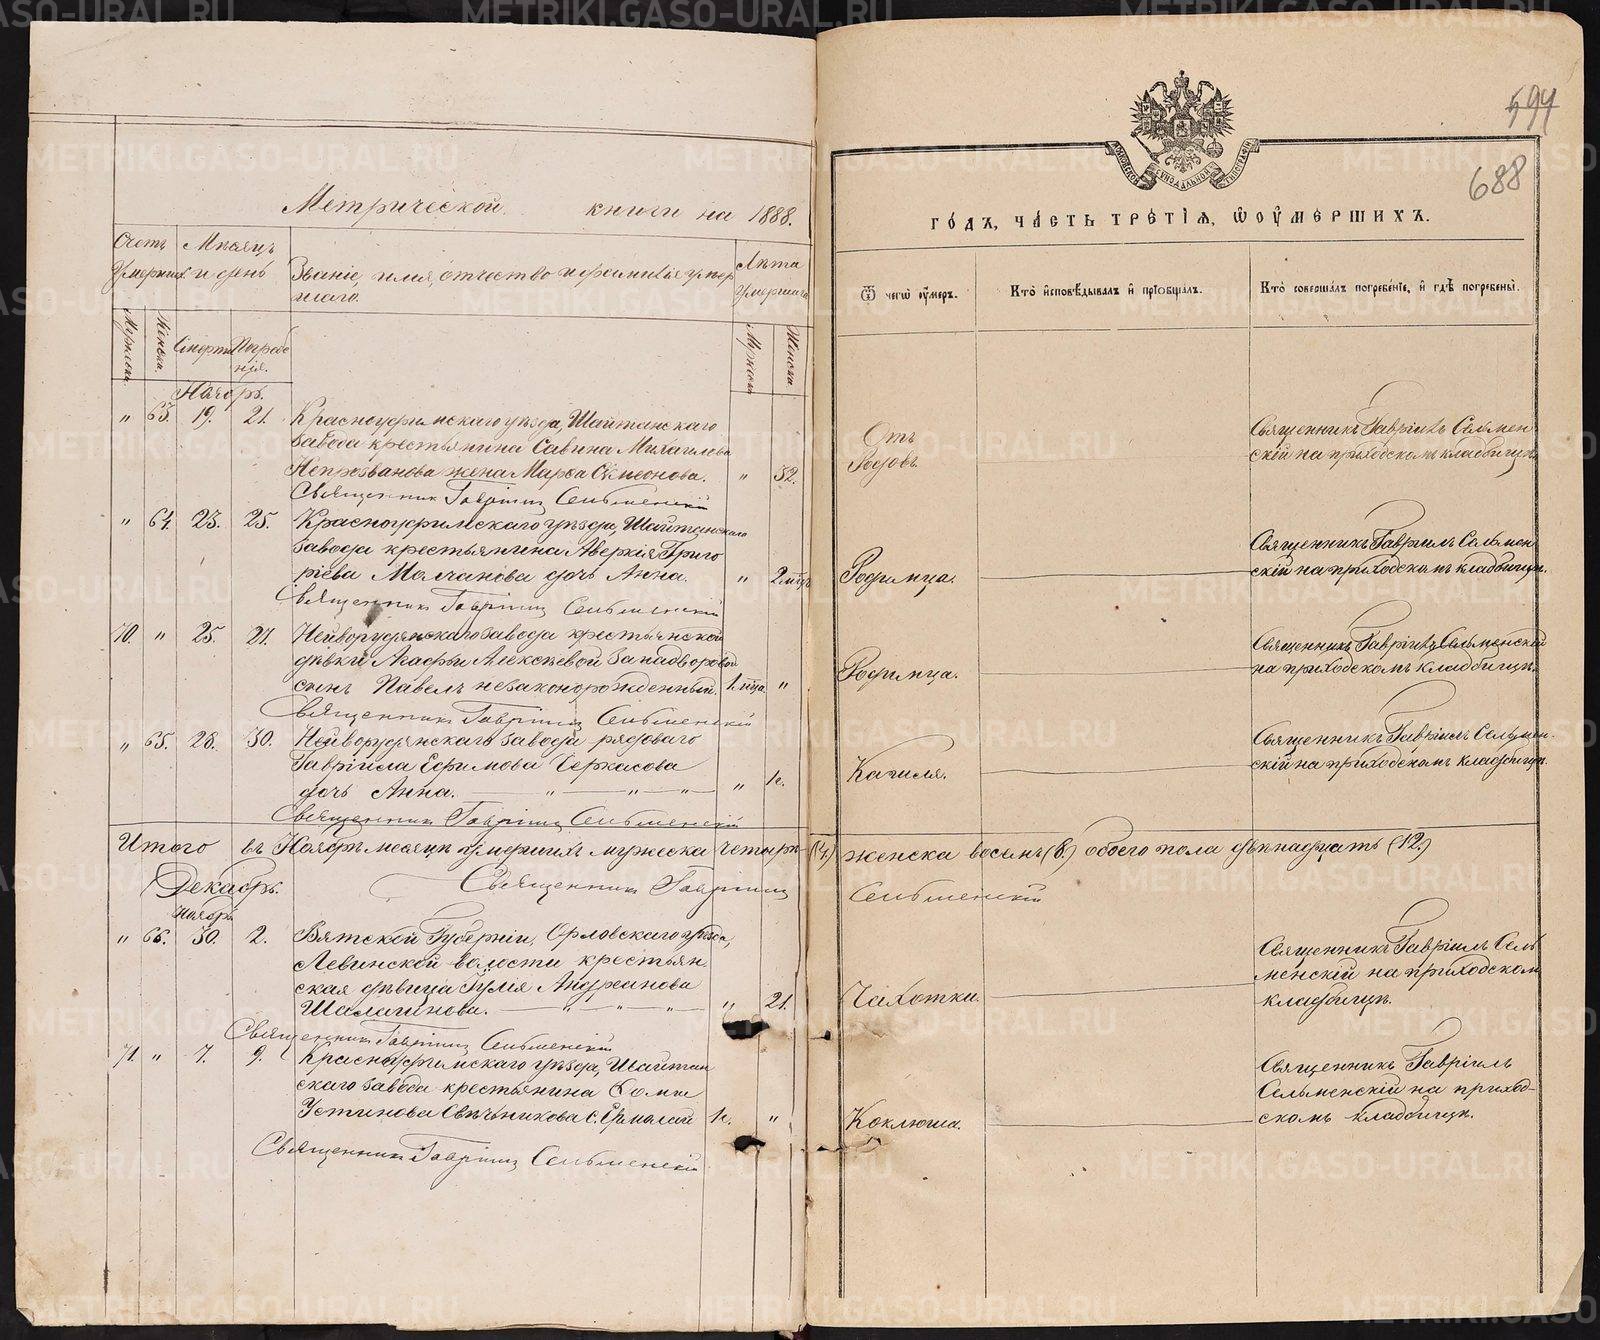 Метрической книги на 1888.
Счетъ умершихъ
Мѣсяцъ и день
Званіе, имя, отчество и фамилія умер
шаго.
Лѣта умершаго
Мужеска.
Женска.
Смерти
Погребе
нія.
Мужска
Женска
Ноябрь.
" 63. 19. 21. Красноуфимскаго уѣзда, Шайтанскаго
завода крестьянина Савина Михаилова
жена Марѳа Сѵмеонова. " 32.
Священникъ Гавріилъ Сельменскій
" 64. 23. 25. Красноуфимскаго уѣзда, Шайтанскаго
завода крестьянина Аверкія Григо
ріева Молчанова дочь Анна. " 2 мца
Священникъ Гавріилъ Сельменскій
70. " 25. 27. Нейворудянскаго завода крестьянской
дѣвки Агафьи Алексѣевой Западворовой
сынъ Павелъ незаконорожденный. 1 мца "
Священникъ Гавріилъ Сельменскій
" 65. 28. 30. Нейворудянскаго завода рядоваго
Гавріила Ефимова Черкасова
дочь Анна. " " " " 1г.
Священникъ Гавріилъ Сельменскій
Итого въ Ноябрѣ месяцѣ умершихъ мужеска четыре (4.) женска восемь (8.) обоего пола двѣнадцать (12.)
Священникъ Гавріилъ Сельменскій
Декабрь.
Ноября
" 66. 30. 2. Вятской Губерніи, Орловскаго уѣзда,
Левинской волости крестьян
ская дѣвица Гулія Андреанова
Шалагинова. " " " " 21.
Священникъ Гавріилъ Сельменскій
71. " 7. 9. Красноуфимскаго уѣзда, Шайтан
скаго завода крестьянина Ѳомы
Устинова Свѣчникова с. Ермолай 1г. "
Священникъ Гавріилъ Сельменскій
594
688
ГОДЪ, ЧАСТЬ ТРЕТІЯ, Ѡ ОУМЕРШИХЪ.
Ѿ чегѡ оумеръ.
Кто исповѣдывалъ и пріобщалъ.
Кто совершалъ погребеніе, и гдѣ погребены.
Отъ
Родовъ.
Священникъ Гавріилъ Сельмен
скій на приходскомъ кладбищѣ.
Родимца.
Священникъ Гавріилъ Сельмен
скій на приходскомъ кладбищѣ.
Родимца.
Священникъ Гавріилъ Сельменскій
на приходскомъ кладбищѣ.
Кашля.
Священникъ Гавріилъ Сельмен
скій на приходскомъ кладбищѣ.
Чахотки.
Священникъ Гавріилъ Сель
менскій на приходскомъ
кладбищѣ.
Коклюша.
Священникъ Гавріилъ
Сельменскій на приход-
скомъ кладбищѣ.
METRIKI.GASO-URAL.RU